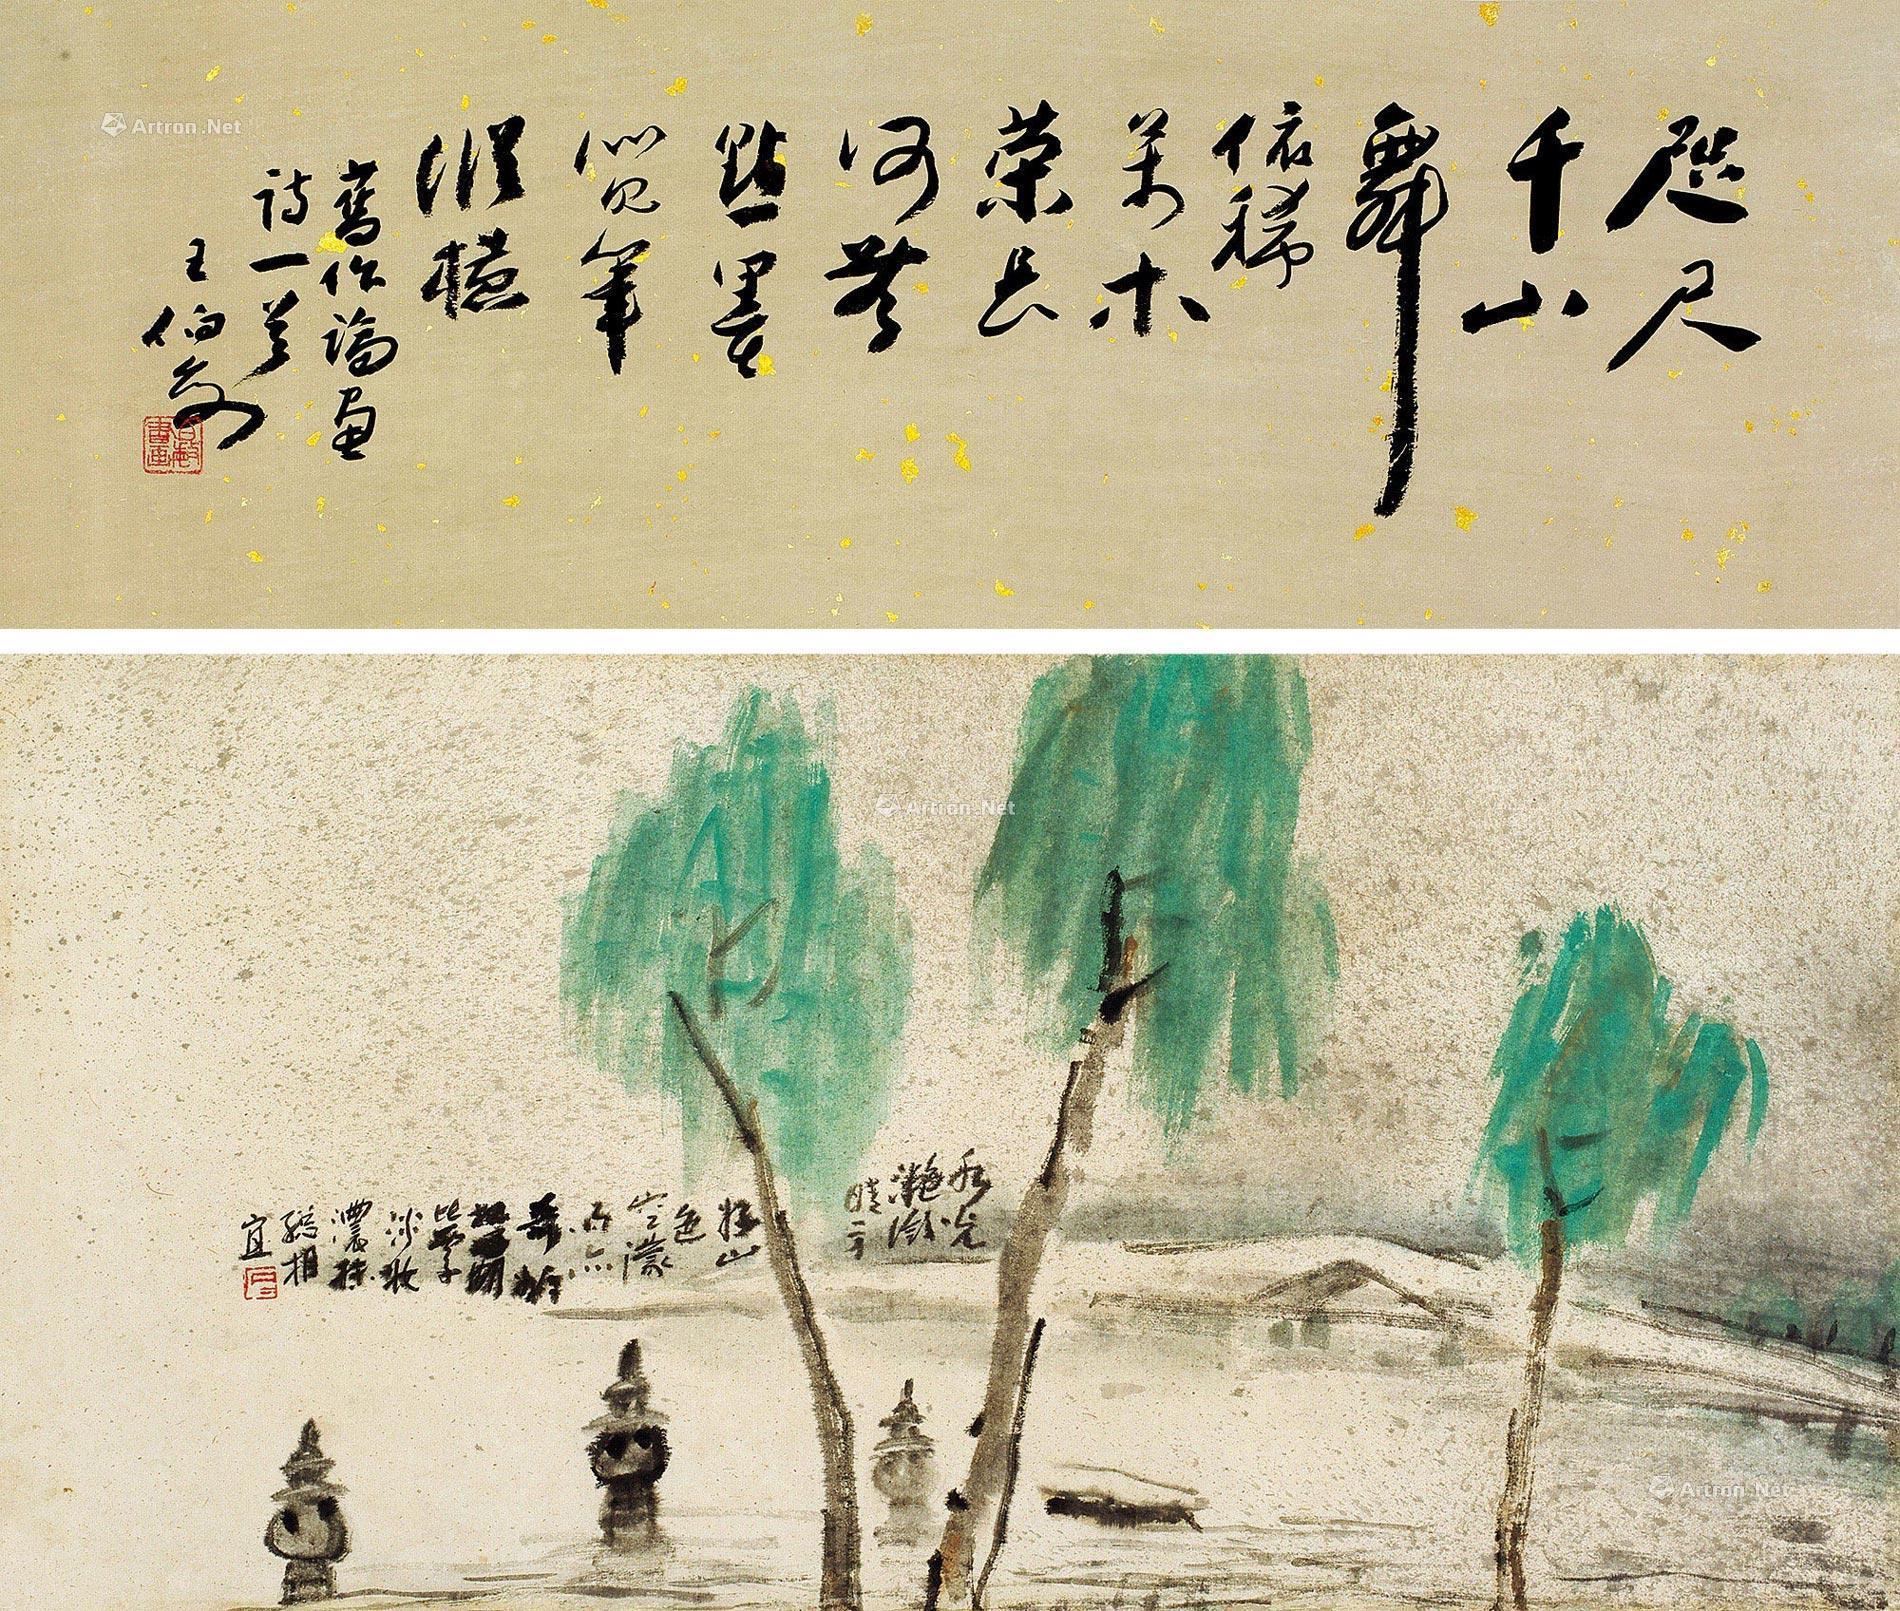 咫尺
千山
舞
依稀
萬木
榮長
河無
點墨
似見筆
縱橫
舊作論畫
詩一首
王伯敏
伯敏書畫
水光
灩瀲
晴方
好山
色
空濛
雨亦
奇欲
比西子
淡妝
濃抹
總相
宜
Artron.Net
Artron.Net
Artron.Net